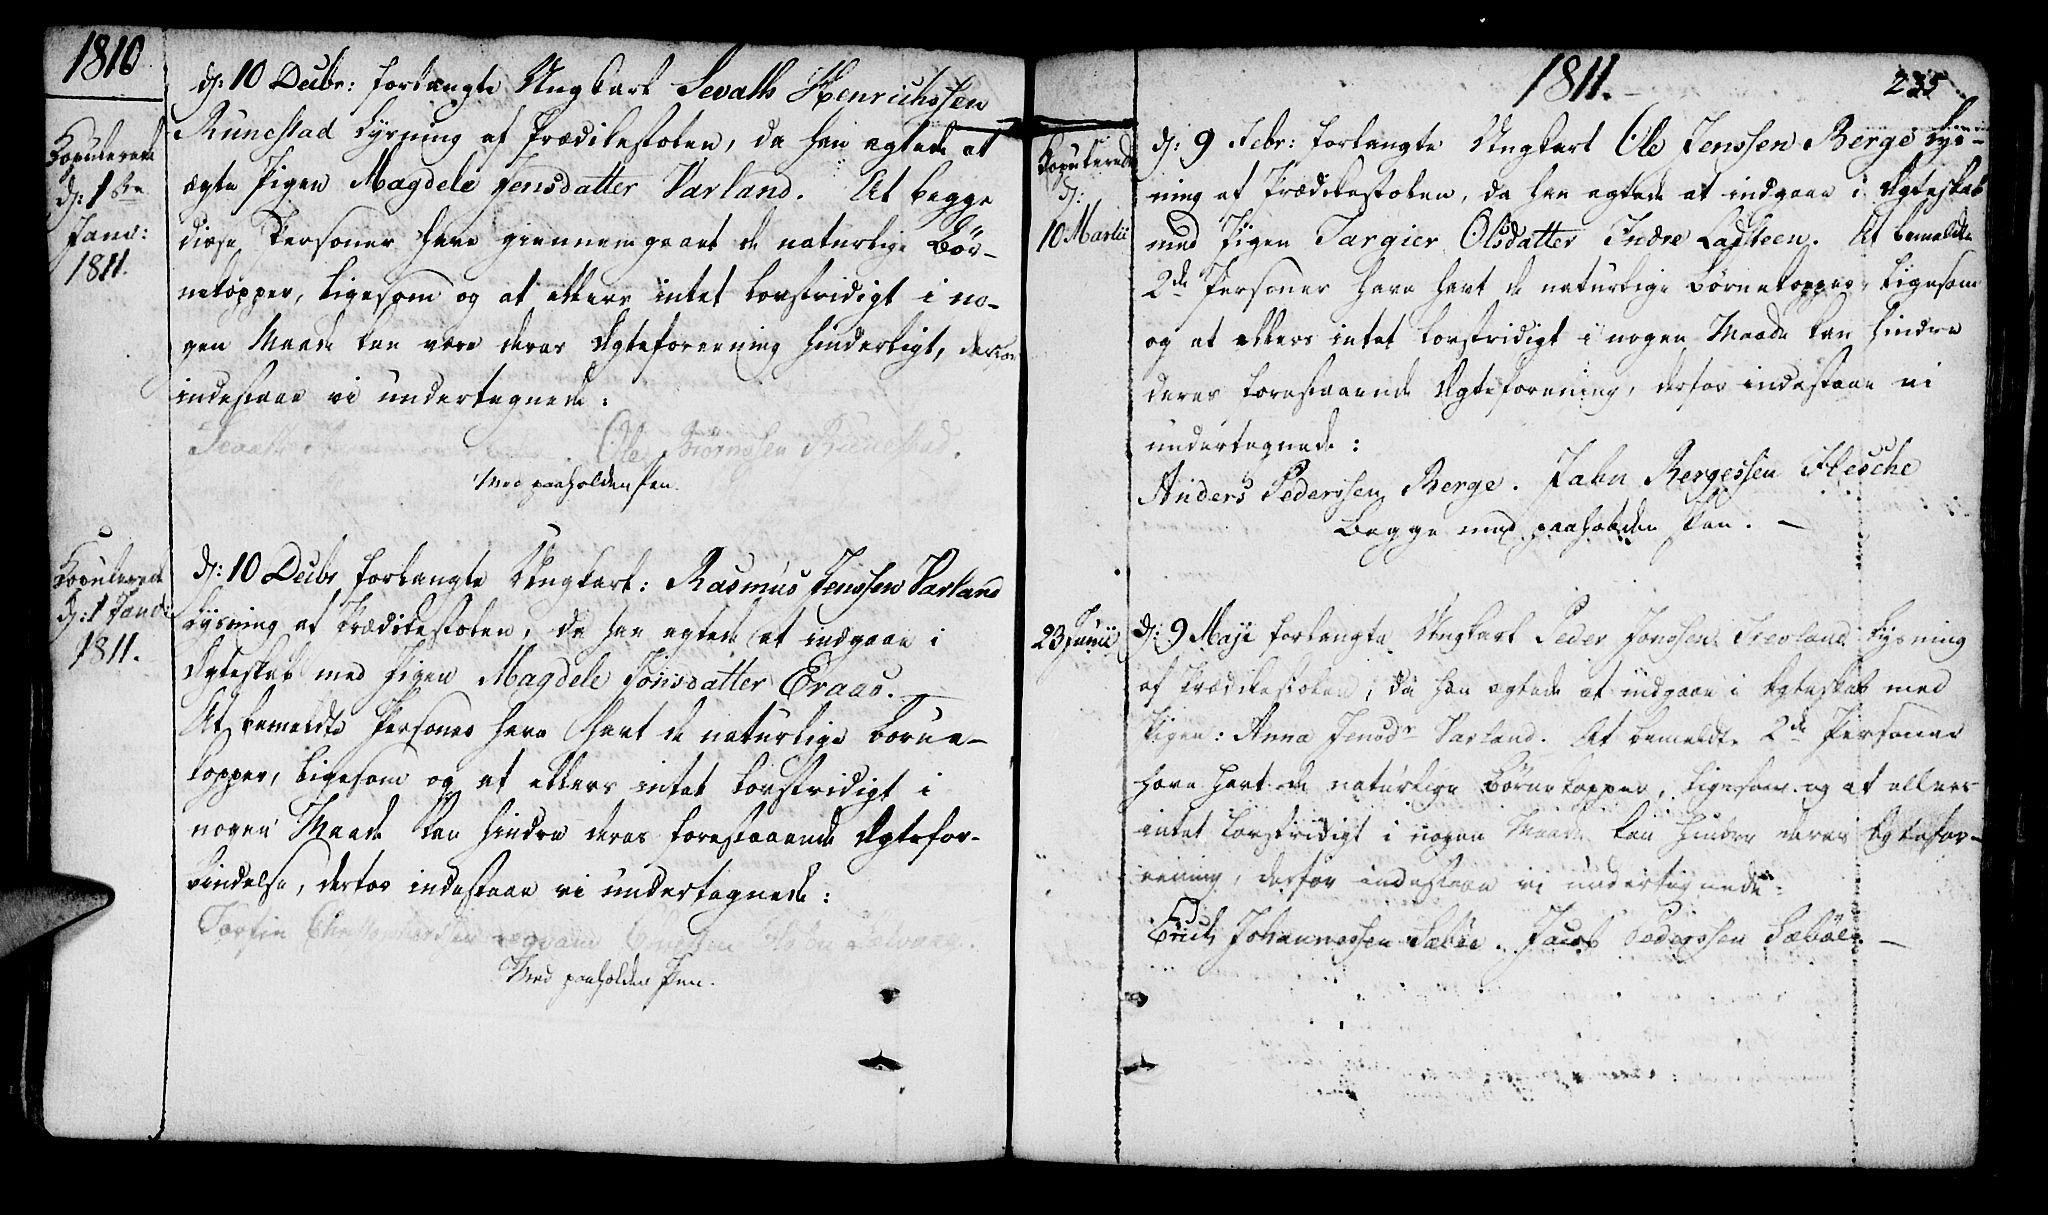 1810
Kopulerede
d: 1ste
Janv:
1811.
d: 10 Decbr: forlangte Ungkarl Sevath Henrichssen
Runestad Lysning af Prædikestolen, da han agtede at
ægte Pigen Magdele Jensdatter Varland. At begge
disse Personer have giennemgaaet de naturlige Bör-
nekopper, ligesom og at ellers intet lovstridigt i no-
gen Maade kan være deres Ægteforeening hinderligt, derfor
indestaae vi undertegnede:
Sevath Ole Biörnssen Runestad.
Med paaholden Pen.
Kopulerede
d: 1 Janv:
1811.
d: 10 Decbr forlangte Ungkarl: Rasmus Jenssen Varland
Lysning af Prædikestolen, da han agtede at indgaae i
Ægteskab med Pigen Magdele Jonsdatter Eraas.
At bemeldte Personer have havt de naturlige Börne-
kopper, ligesom og at ellers intet lovstridigt i
nogen Maade kan hindre deres forestaaende Ægtefor-
bindelse, derfor indestaae vi undertegnede:
Torfin
Med paaholden Pen.
1811.
235
Kopulerede
d:
10 Martii
d: 9 Febr: forlangte Ungkarl Ole Jenssen Berge Lys-
ning af Prædikestolen, da han agtede at indgaae i Ægteskab
med Pigen Targier Olsdatter Indre Laftteen. At bemeldte
2de Personer have havt de naturlige Börnekopper, ligesom
og at ellers intet lovstridigt i nogen Maade kan hindre
deres forestaaende Ægteforening, derfor indestaae vi
undertegnede:
Anders Pederssen Berge. Jahn Bergessen Flesche
begge med paaholden Pen.
23 Junii
d: 9 Maji forlangte Ungkarl Peder Jonssen Lysning
af Prædikestolen, da han agtede at indgaae i Ægteskab med
Pigen: Anna Jensdr Varland. At bemeldte 2de Personer
have havt de naturlige Börnekopper, ligesom og at ellers
intet lovstridigt i nogen Maade kan hindre deres Ægtefor-
eening, derfor indestaae vi undertegnede:
Erich Johannessen Sæböe. Jacob Pederssen Sæböe.